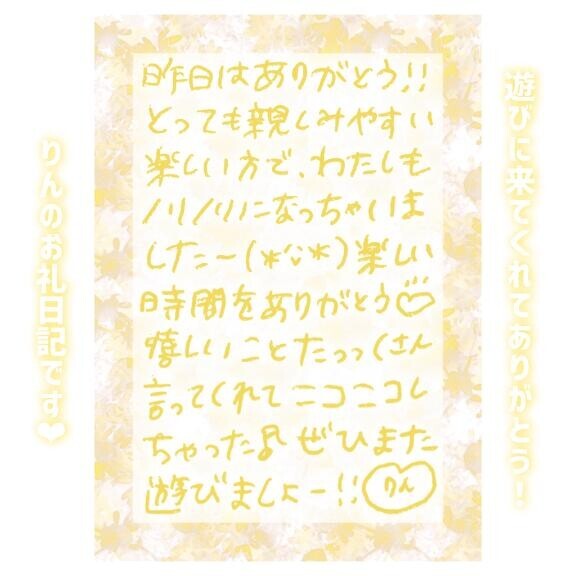 遊びに来てくれてありがとう！
昨日はありがとう!!
とっても親しみやすい
楽しい方で、わたしも
ノリノリになっちゃいま
した〜(*ˊᵕˋ*)楽しい
時間をありがとう♡
嬉しいことたっっくさん
言ってくれてニコニコし
ちゃった♪ぜひまた
遊びましょー!!りん
りんのお礼日記です♥